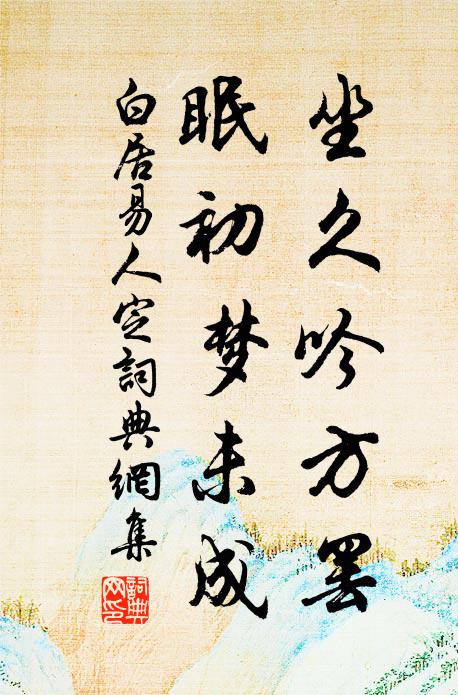 坐久吟方罢
眠初梦未成
白居易人定詞典網集
詞典